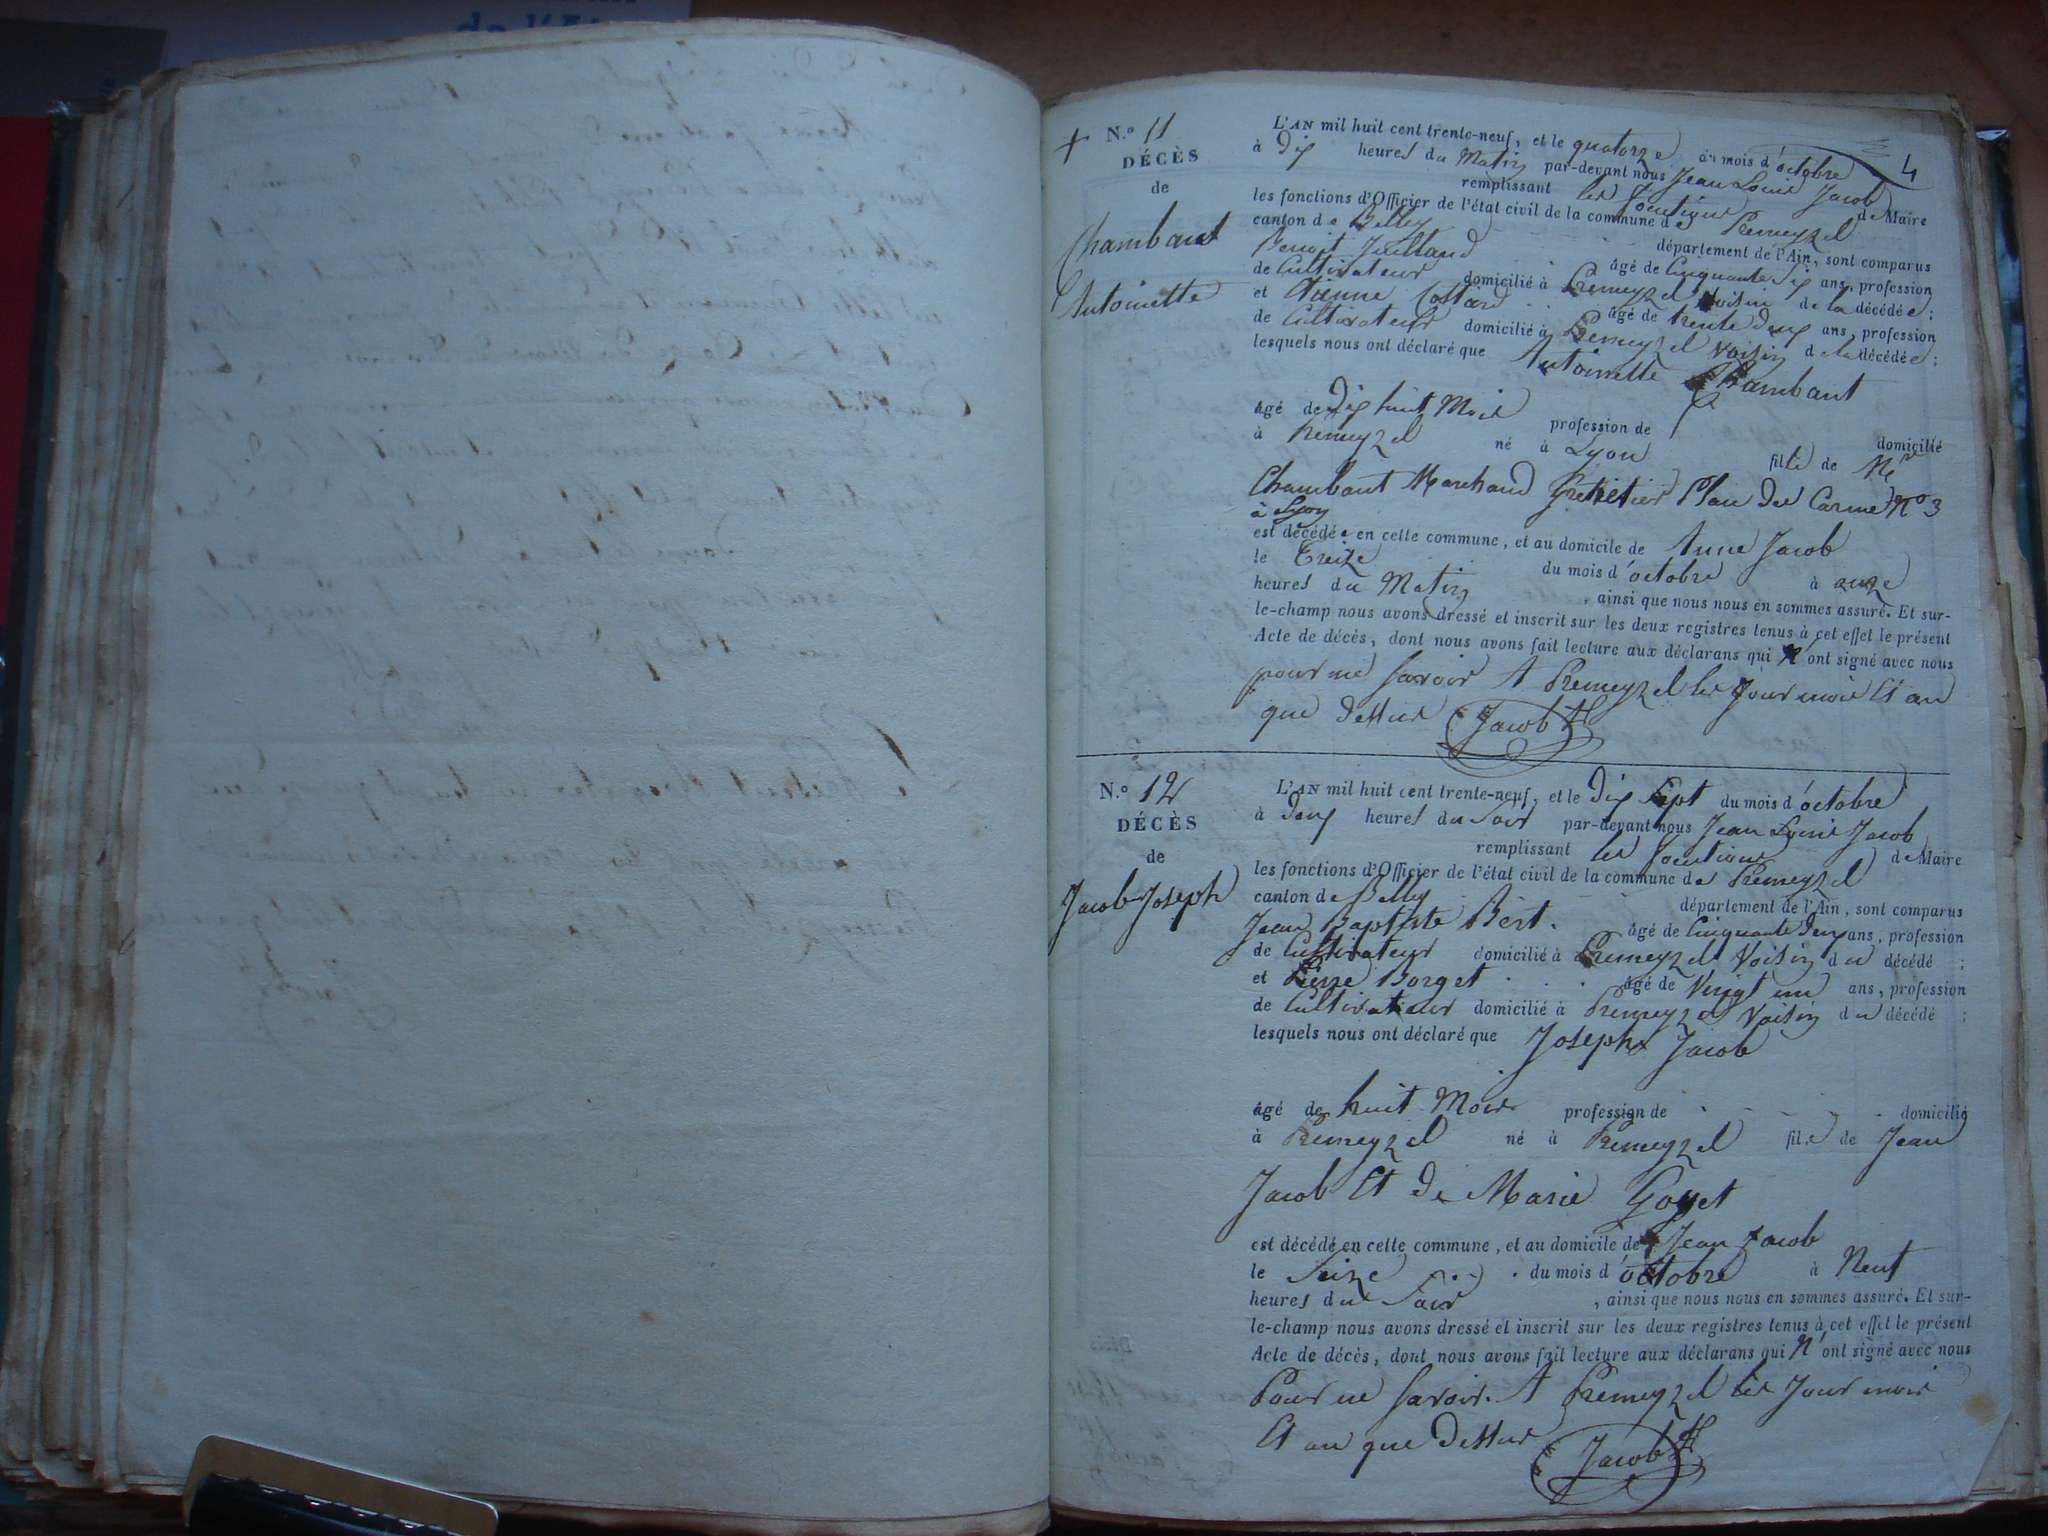 4
+ N.o 11
DÉCÈS
de
Chambaut
Antoinette
L'AN mil huit cent trente-neuf, et le quatorze du mois d'octobre
à Dix heures du Matin par-devant nous Jean Louis Jacob
remplissant les fonctions de Maire
les fonctions d'Officier de l'état civil de la commune de Premeyzel
canton de Belley département de l'Ain, sont comparus
Benoit Juilland âgé de Cinquante Six ans, profession
de Cultivateur domicilié à Premeyzel Voisin de la décédée;
et Etienne âgé de trente deux ans, profession
de Cultivateur domicilié à Premeyzel Voisin de la décédée;
lesquels nous ont déclaré que Antoinette Chambaut
âgé de Dix huit Mois profession de domicilié
à Premeyzel né à Lyon fille de
Chambaut Marchand Place des Carmes No 3
à Lyon
est décédée en cette commune, et au domicile de Anne Jacob
le Treize du mois d'octobre à onze
heures du Matin, ainsi que nous nous en sommes assuré. Et sur-
le-champ nous avons dressé et inscrit sur les deux registres tenus à cet effet le présent
Acte de décès, dont nous avons fait lecture aux déclarans qui N'ont signé avec nous
pour ne Savoir A Premeyzel les Jour mois Et an
que dessus Jacob
N.o 12
DÉCÈS
de
Jacob Joseph
L'AN mil huit cent trente-neuf, et le Dix Sept du mois d'octobre
à Deux heures du Soir par-devant nous Jean Louis Jacob
remplissant les fonctions de Maire
les fonctions d'Officier de l'état civil de la commune de Premeyzel
canton de Belley département de l'Ain, sont comparus
Jean Baptiste Bert. âgé de Cinquante Deux ans, profession
de Cultivateur domicilié à Premeyzel Voisin du décédé;
et Pierre Borget âgé de Vingt un ans, profession
de Cultivateur domicilié à Premeyzel Voisin du décédé;
lesquels nous ont déclaré que Joseph Jacob
âgé de huit Mois profession de domicilié
à Premeyzel né à Premeyzel fils de Jean
Jacob Et De Marie Goyet
est décédé en cette commune, et au domicile de Jean Jacob
le Seize du mois d'octobre à Neuf
heures du Soir, ainsi que nous nous en sommes assuré. Et sur-
le-champ nous avons dressé et inscrit sur les deux registres tenus à cet effet le présent
Acte de décès, dont nous avons fait lecture aux déclarans qui N'ont signé avec nous
Pour ne Savoir. A Premeyzel les Jour mois
Et an que Dessus Jacob